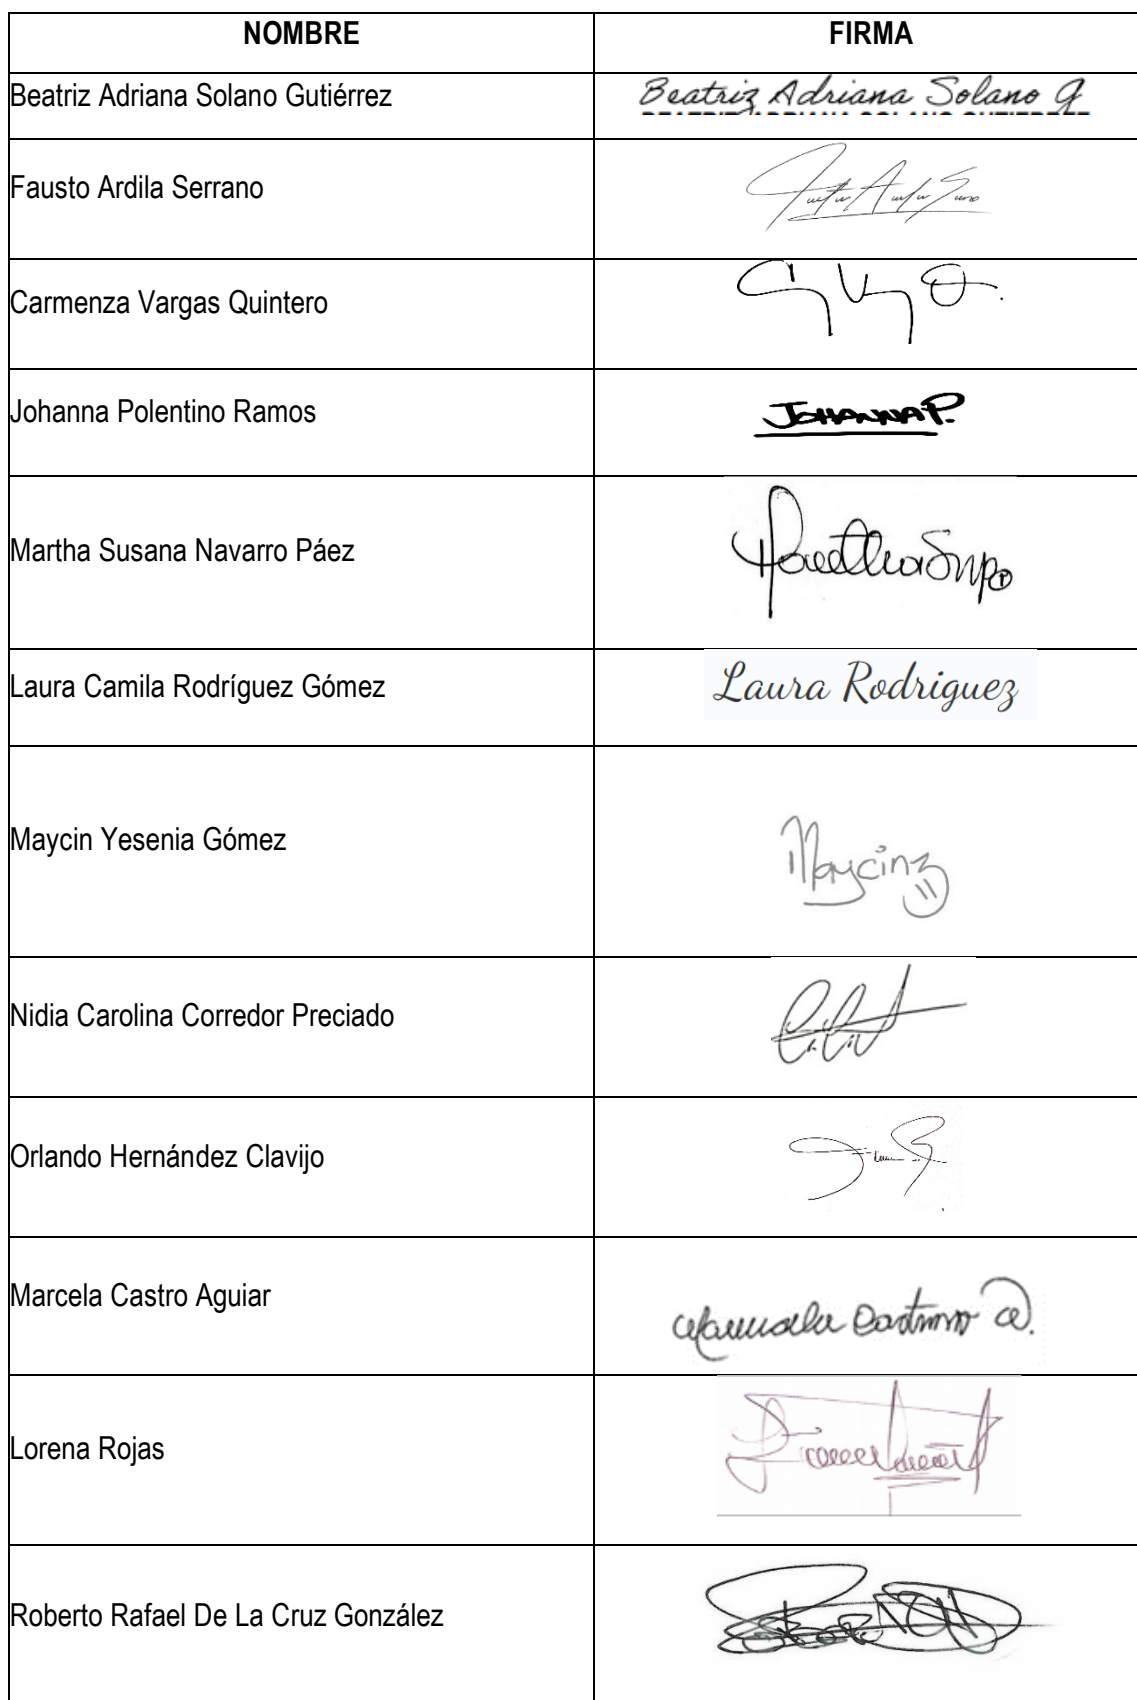 NOMBRE FIRMA
Beatriz Adriana Solano Gutiérrez Beatriz Adriana Solano G
Fausto Ardila Serrano
Carmenza Vargas Quintero
Johanna Polentino Ramos JOHANNA P.
Martha Susana Navarro Páez
Laura Camila Rodríguez Gómez Laura Rodriguez
Maycin Yesenia Gómez Maycin
Nidia Carolina Corredor Preciado
Orlando Hernández Clavijo
Marcela Castro Aguiar
Lorena Rojas
Roberto Rafael De La Cruz González